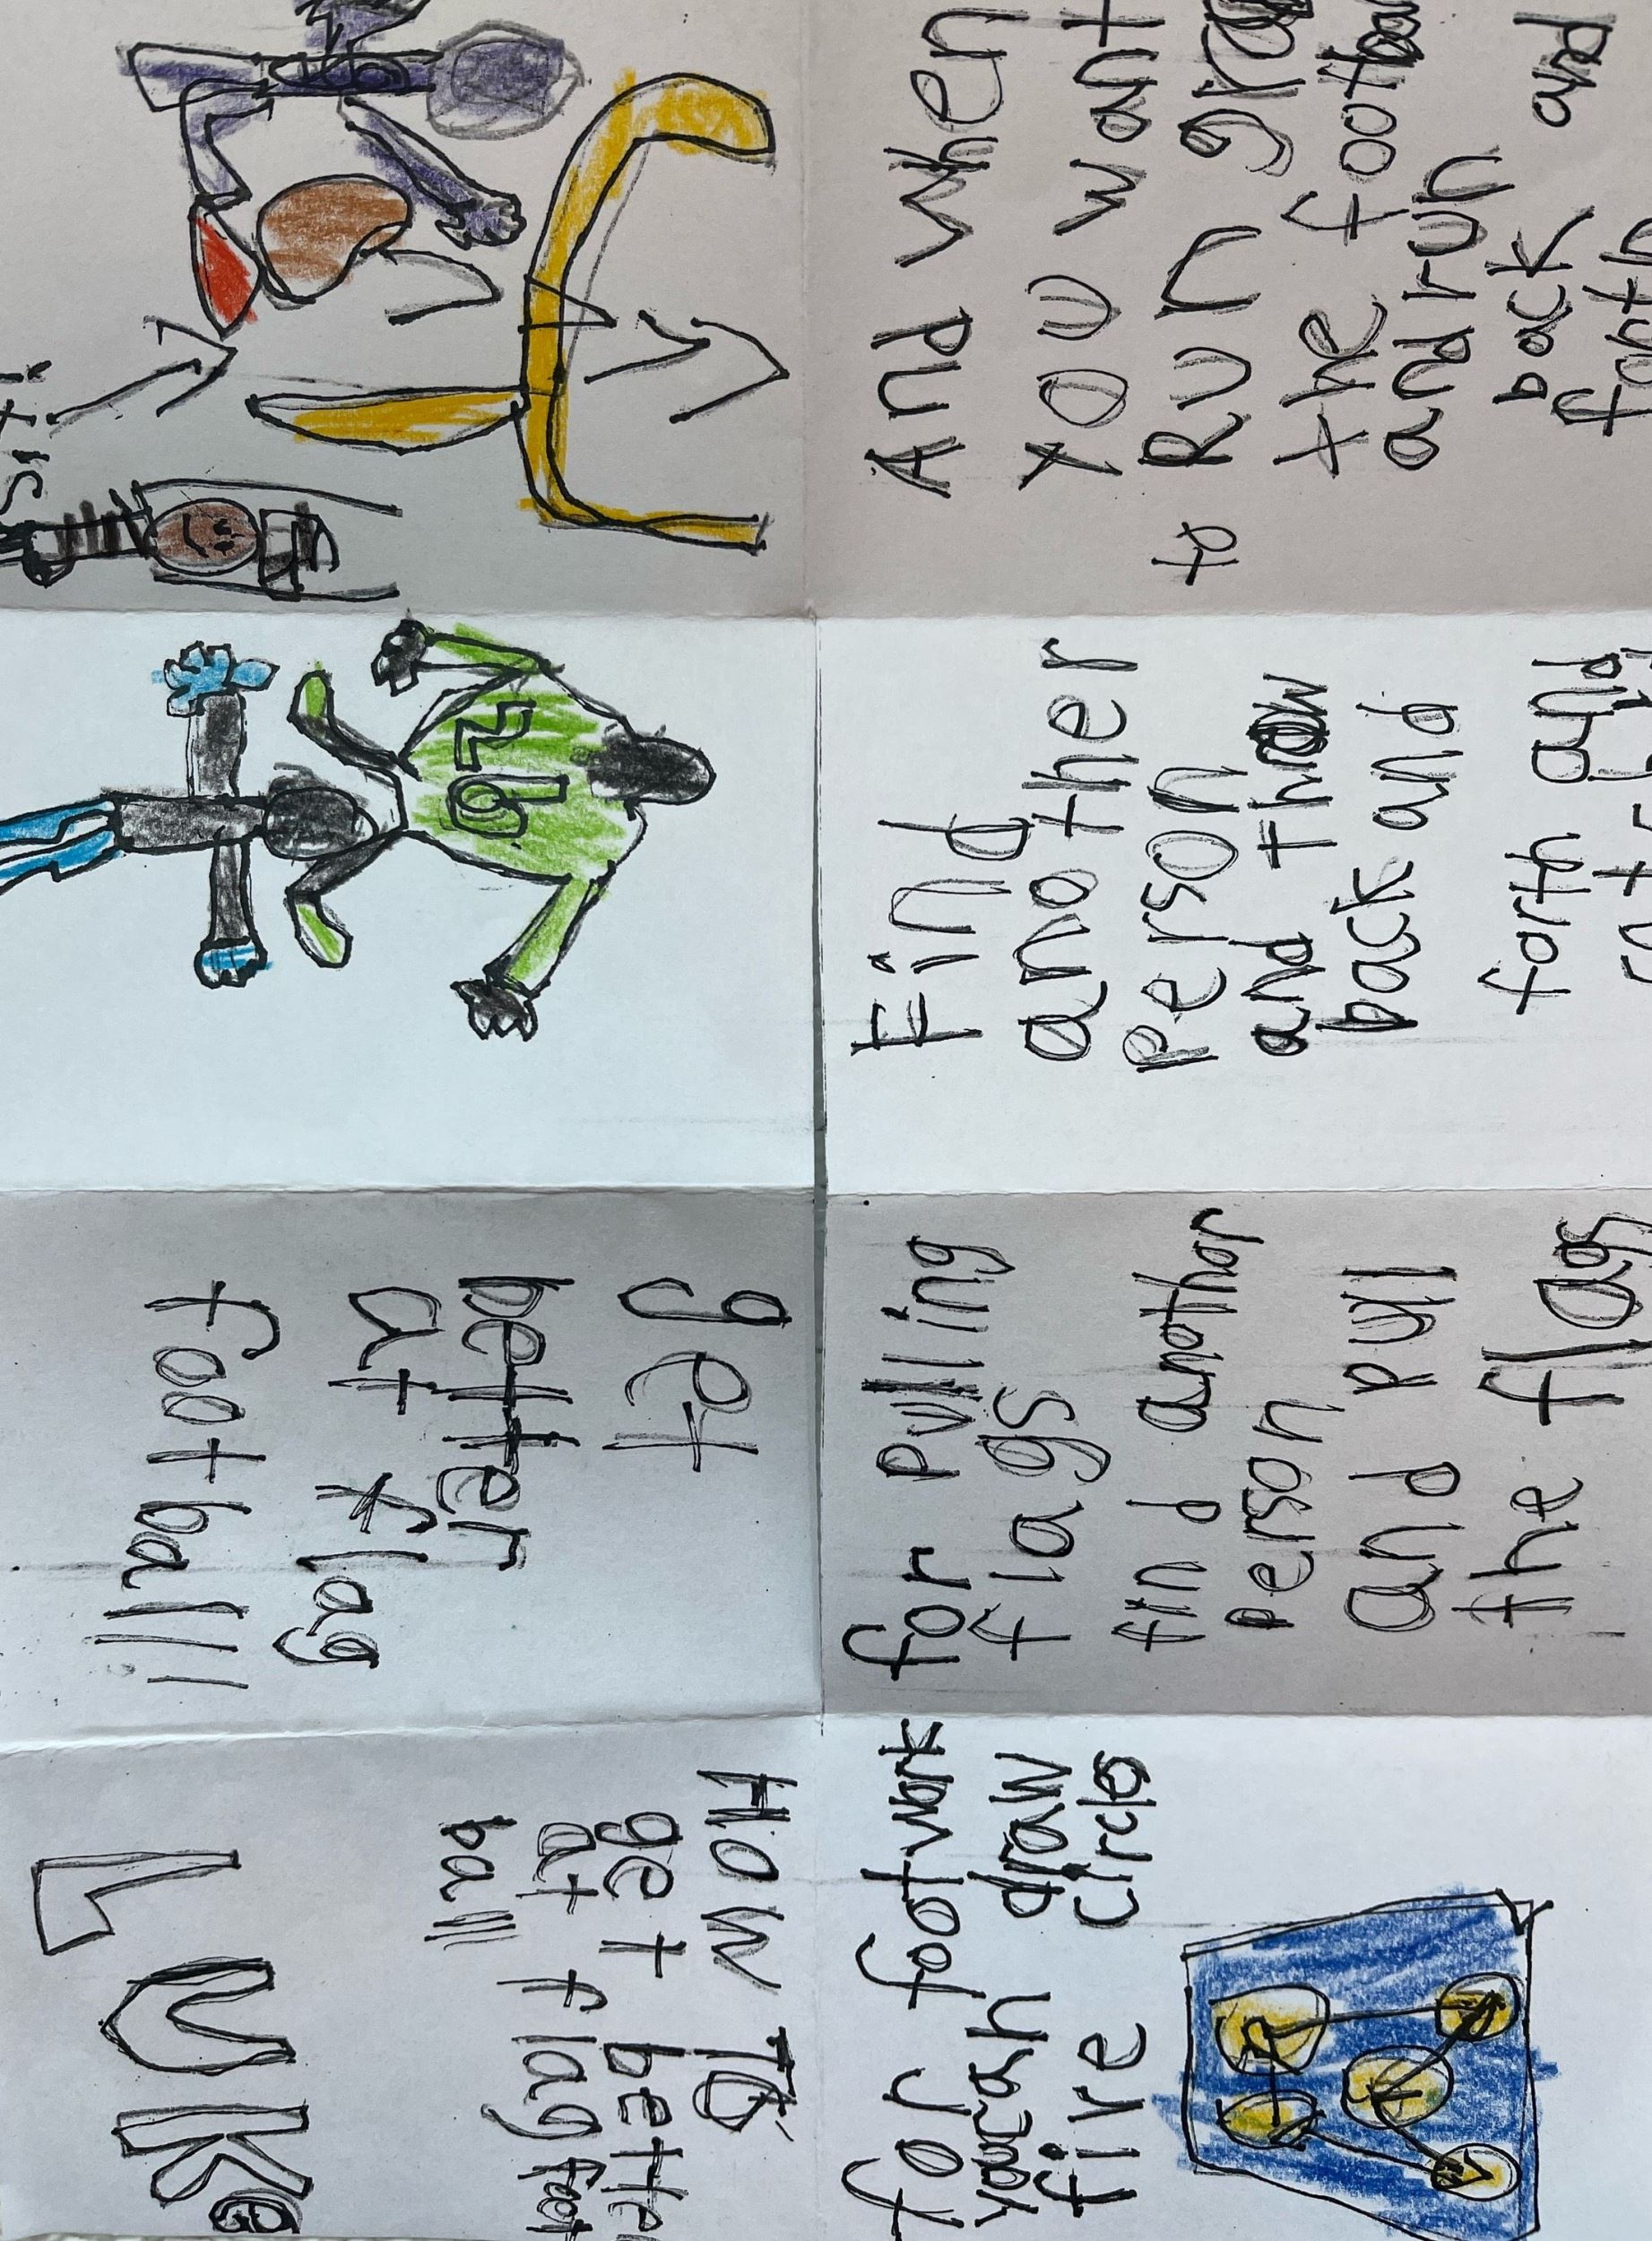 HOW TO
get better
at flag foot
ball
LUKe
get
better
at flag
football!
for footwork
draw
fire circles
for pulling
flags
find another
person
and pull
the flags
Find
another
person
and throw
back and
forth and
And when
you want
to Run
the football
and run
back and